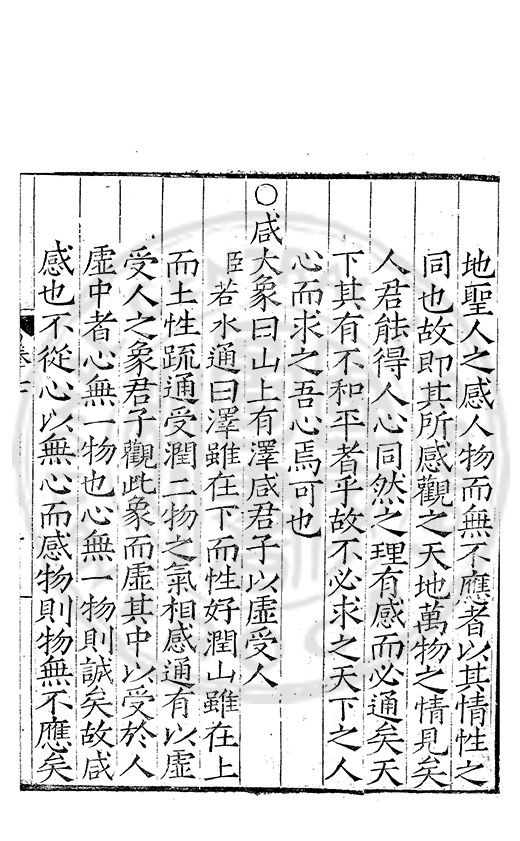 地聖人之感人物而無不應者以其情性之
同也故即其所感觀之天地萬物之情見矣
人君能得人心同然之理有感而必通矣天
下其有不和平者乎故不必求之天下之人
心而求之吾心焉可也
○咸大象曰山上有澤咸君子以虛受人
臣若水通曰澤雖在下而性好潤山雖在上
而土性疏通受潤二物之氣相感通有以虛
受人之象君子觀此象而虛其中以受於人
虛中者心無一物也心無一物則誠矣故咸
感也不從心以無心而感物則物無不應矣